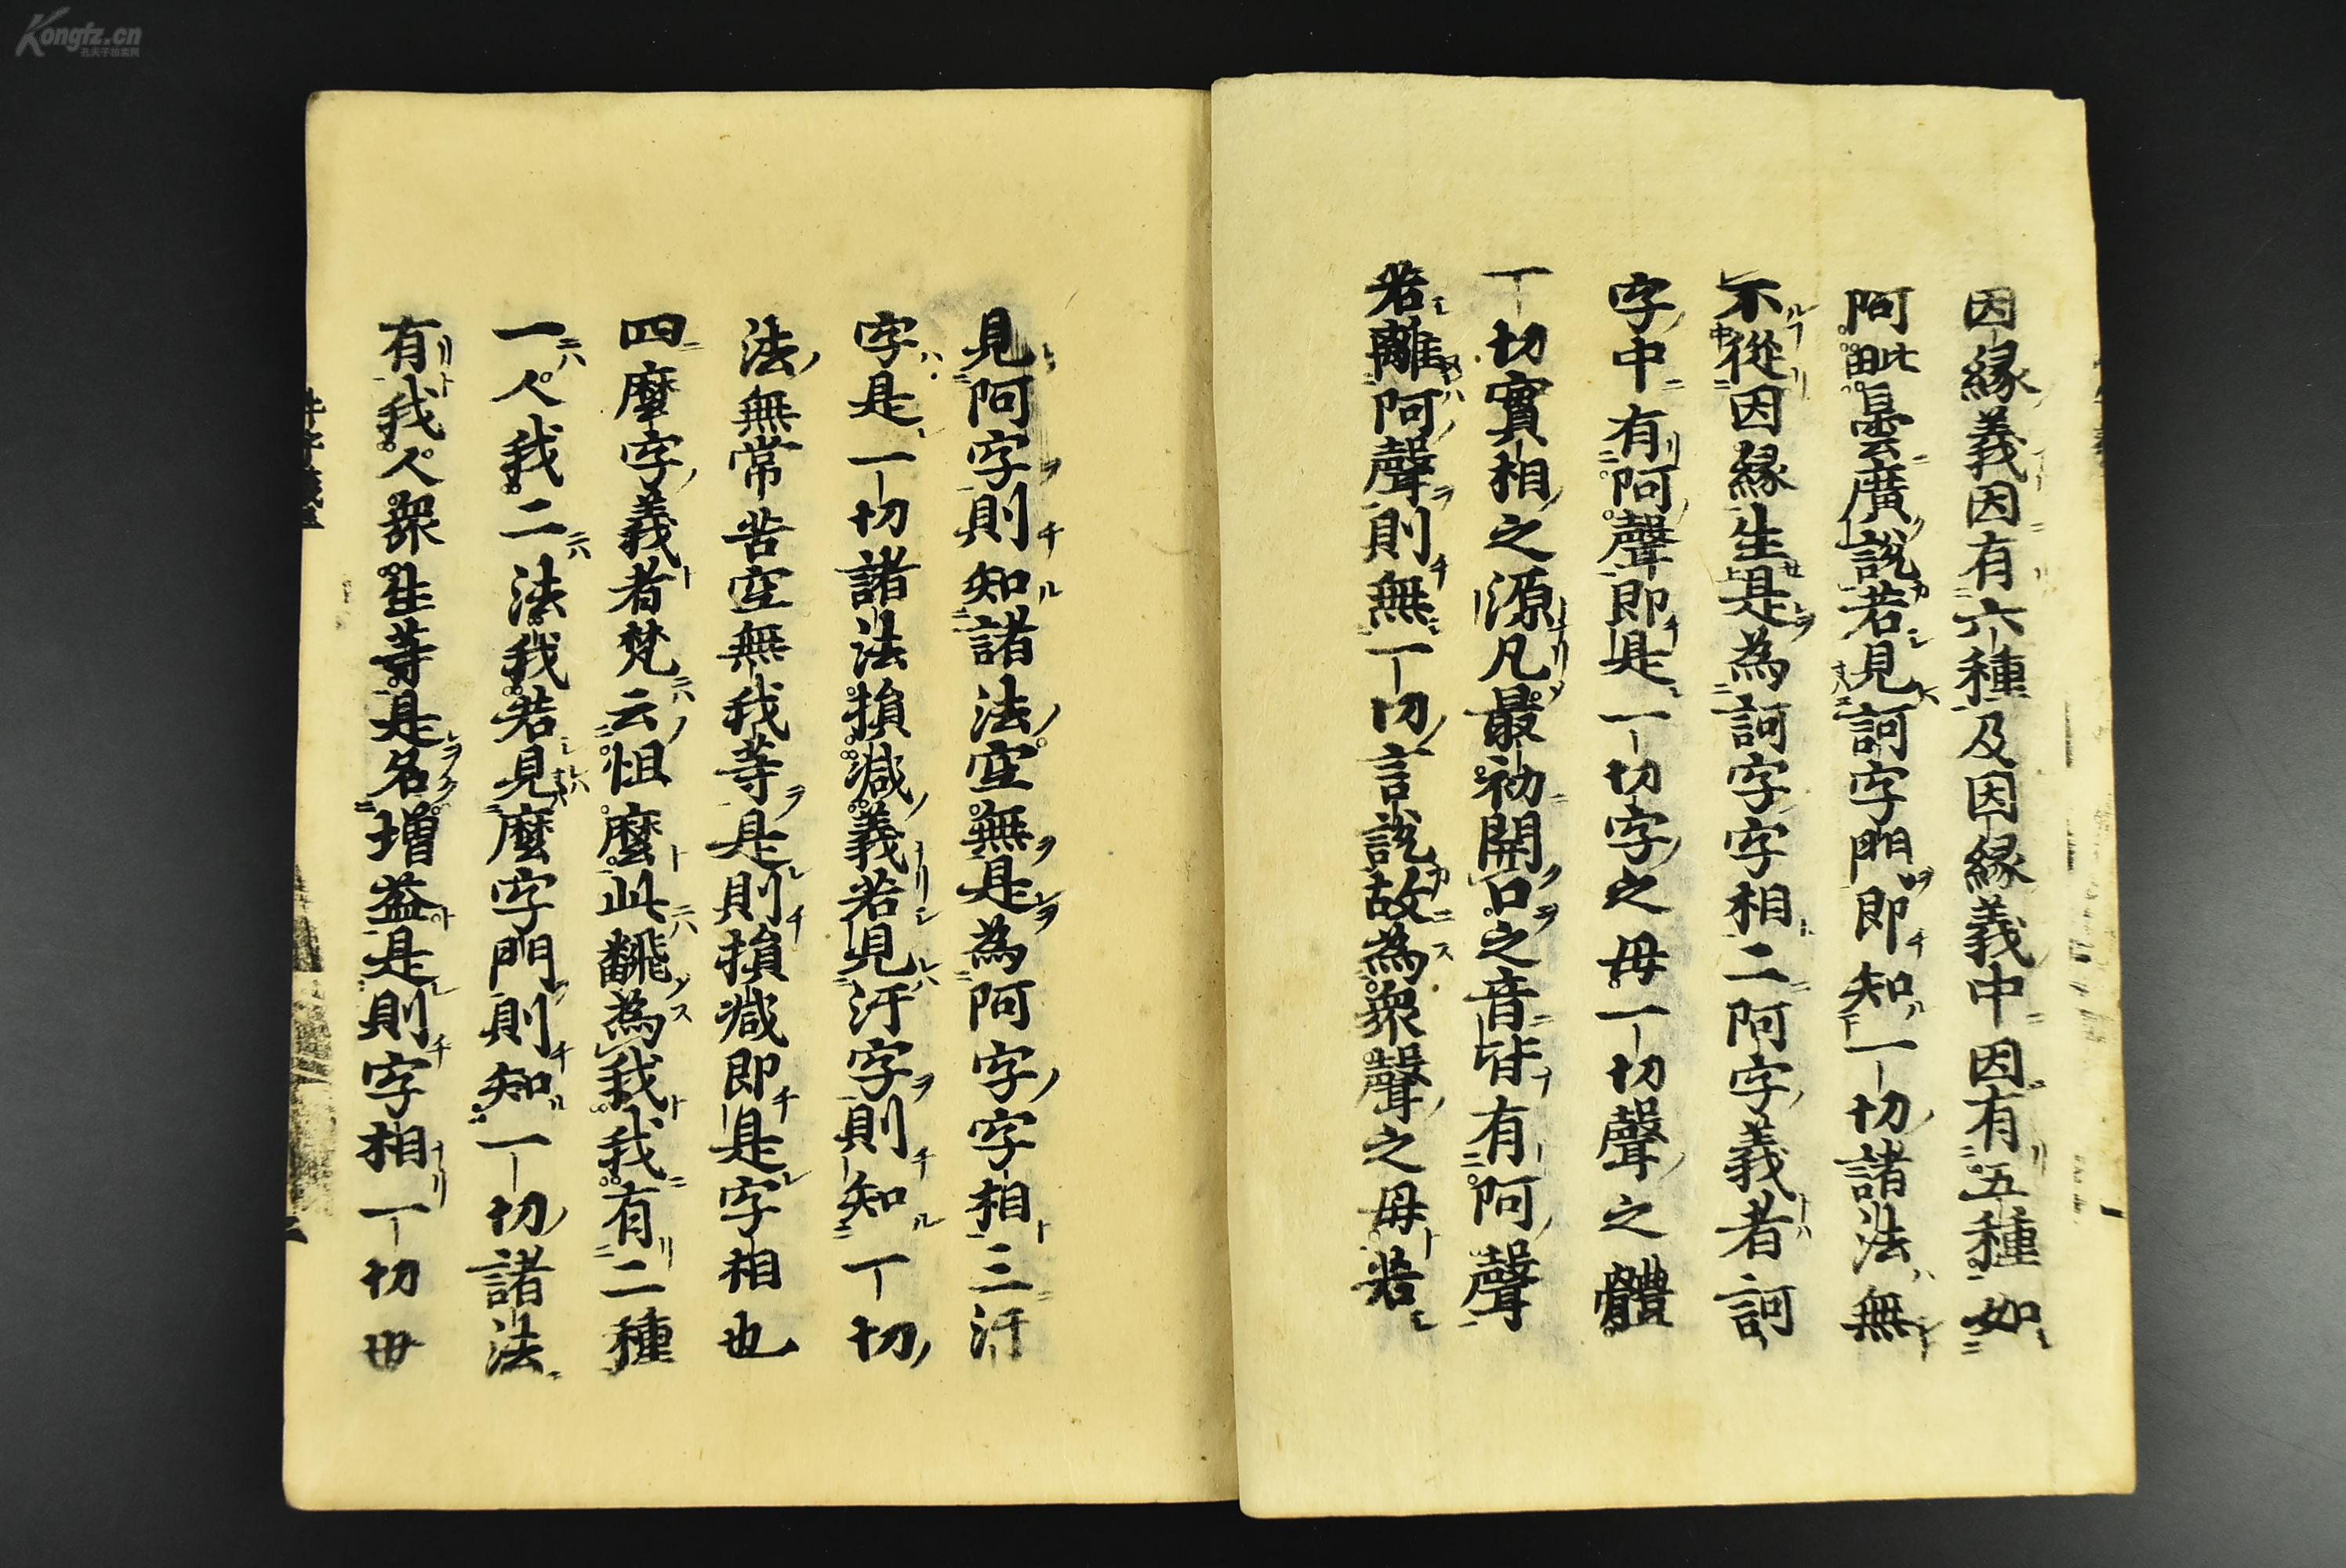 因緣義因有六種及因緣義中因有五種如
阿毗曇廣說若見訶字門即知一切諸法無
不從因緣生是為訶字字相二阿字義者訶
字中有阿聲即是一切字之母一切聲之體
一切實相之源凡最初開口之音皆有阿聲
若離阿聲則無一切言說故為眾聲之母若
見阿字則知諸法空無是為阿字字相三汙
字是一切諸法損減義若見汙字則知一切
法無常苦空無我等是則損減即是字相也
四麼字義者梵云怛麼此翻為我我有二種
一人我二法我若見麼字門則知一切諸法
有我人眾生等是名增益是則字相一切世
Kongfz.cn
孔夫子拍卖网